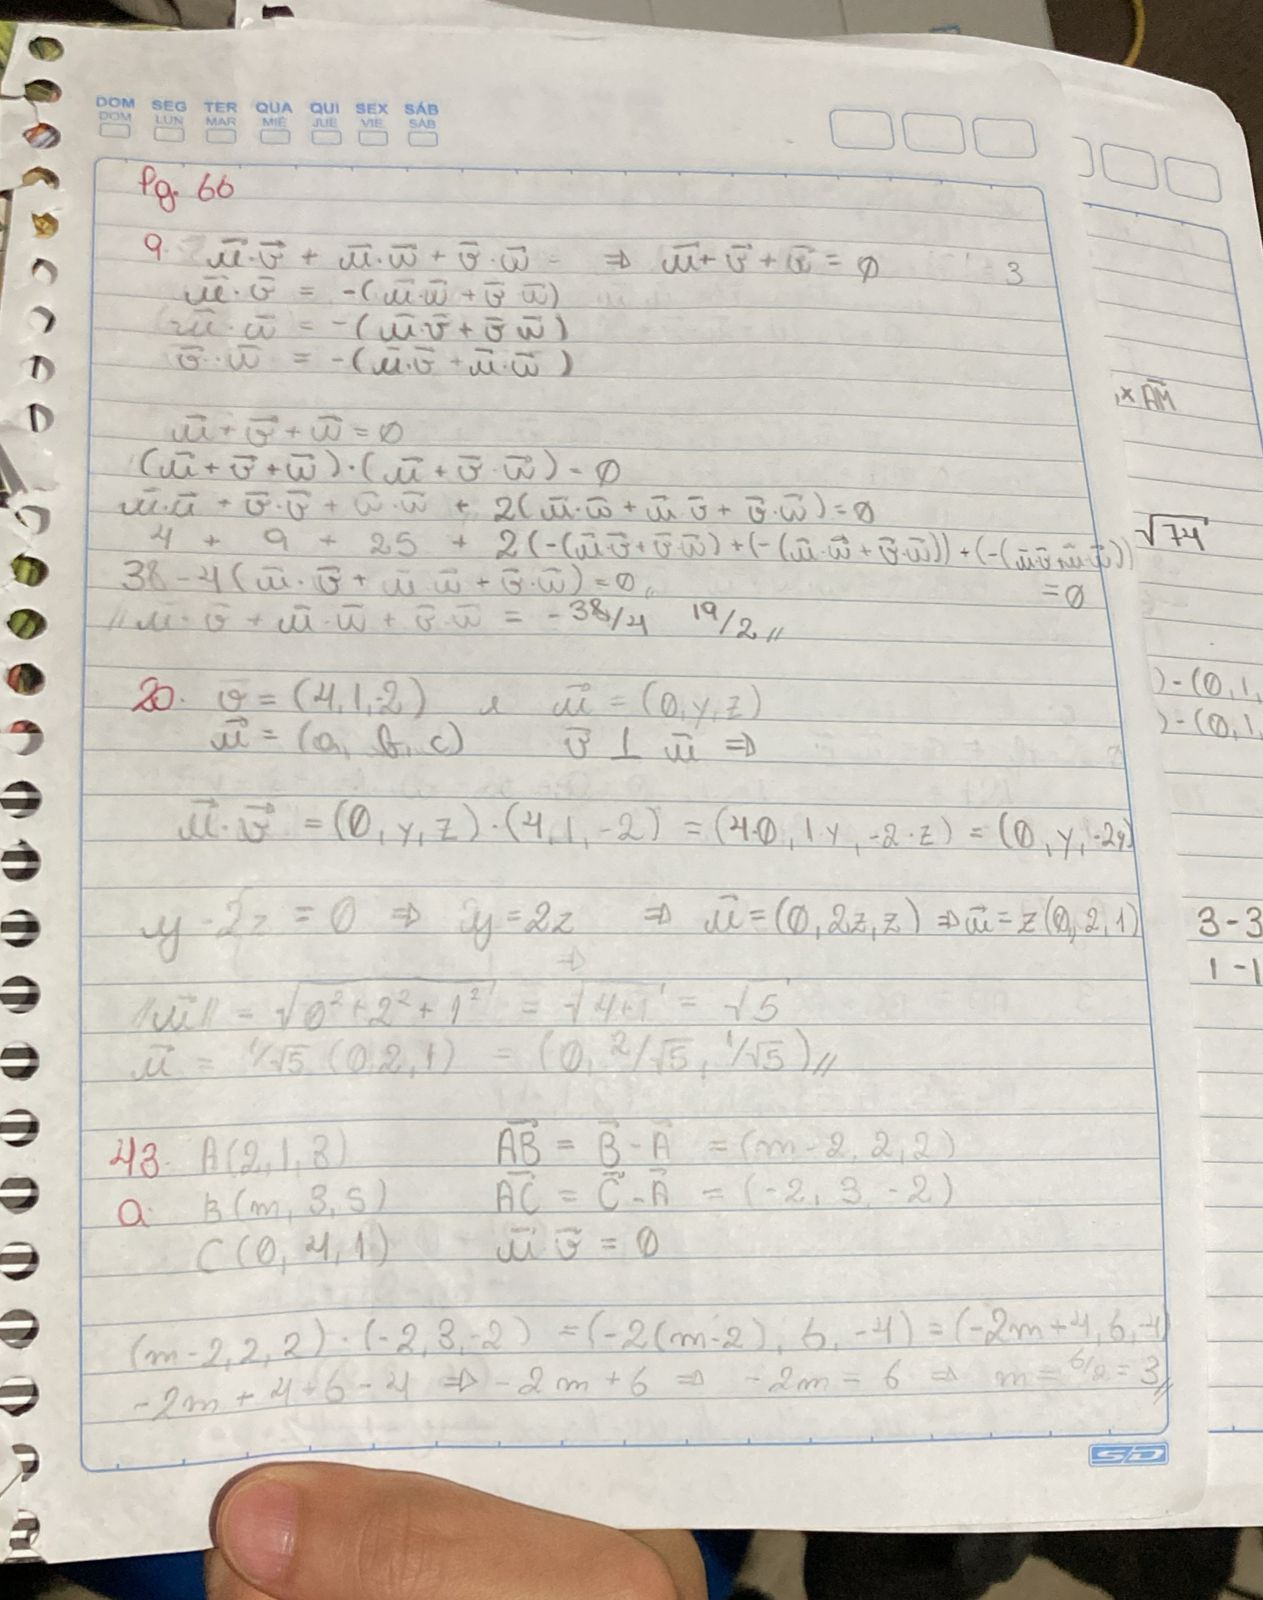 DOM SEG TER QUA QUI SEX SÁB
DOM LUN MAR MIÉ JUE VIE SÁB
Pg. 66
9. u⃗·v⃗ + u⃗·w⃗ + v⃗·w⃗ = ⇒ u⃗+v⃗+w⃗ = 0 = 3
u⃗·v⃗ = -(u⃗·w⃗ + v⃗ w⃗)
u⃗·w⃗ = -(u⃗·v⃗ + v⃗ w⃗)
v⃗·w⃗ = -(u⃗·v⃗ + u⃗·w⃗)
u⃗+v⃗+w⃗=0
(u⃗+v⃗+w⃗)·(u⃗+v⃗·w⃗) = 0
u⃗·u⃗ + v⃗·v⃗ + w⃗·w⃗ + 2(u⃗·w⃗ + u⃗ v⃗ + v⃗·w⃗)=0
4 + 9 + 25 + 2(-(u⃗·v⃗+v⃗·w⃗)+(-(u⃗·w⃗+v⃗·w⃗))+(-(u⃗·v⃗+u⃗·w⃗))
= 0
38-4(u⃗·v⃗+u⃗ w⃗+v⃗·w⃗)=0
// u⃗·v⃗ + u⃗·w⃗ + v⃗·w⃗ = -38/4 19/2 //
20. v⃗ = (4,1,-2) e u⃗ = (0,y,z)
u⃗ = (a, b, c) v⃗ ⊥ u⃗ ⇒
u⃗·v⃗ = (0,y,z)·(4,1,-2) = (4·0, 1·y, -2·z) = (0, y, -2y)
y - 2z = 0 ⇒ y = 2z ⇒ u⃗ = (0,2z,z) ⇒ u⃗ = z(0,2,1)
⇒
//u⃗// = √0²+2²+1² = √4+1 = √5
u⃗ = 1/√5 (0,2,1) = (0, 2/√5, 1/√5) //
43. A(2,1,3) AB⃗ = B⃗ - A⃗ = (m-2, 2, 2)
a. B(m,3,5) AC⃗ = C⃗ - A⃗ = (-2, 3, -2)
C(0,4,1) u⃗ v⃗ = 0
(m-2,2,2)·(-2,3,-2) = (-2(m-2), 6, -4) = (-2m+4, 6, -4)
-2m + 4 + 6 - 4 ⇒ -2m + 6 ⇒ -2m = 6 ⇒ m = 6/2 = 3 //
SD
x AM⃗
√74
)-(0,1,
)-(0,1,
3-3
1-1